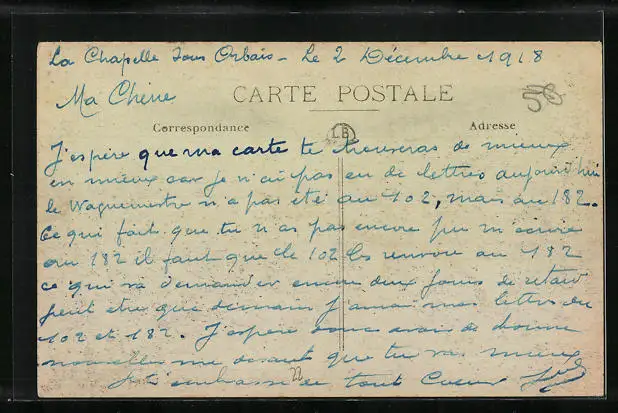 La Chapelle Sous Orbais - Le 2 Décembre 1918
Ma Cherie
CARTE POSTALE
58
Correspondance
LB
Adresse
J'espère que ma carte te trouveras de mieux
en mieux car je n'ai pas eu de lettres aujourd'hui
le Waguemestre n'a pas été au 102, mais au 182.
Ce qui fait que tu n'as pas encore pu m'écrire
au 182 il faut que le 102 les renvoie au 182
ce qui va demander encore deux jours de retard
peut etre que demain j'aurai mes lettres du
102 et 182. J'espère donc avoir de bonne
nouvelles me disant que tu vas mieux
Je t'embrasse de tout Coeur